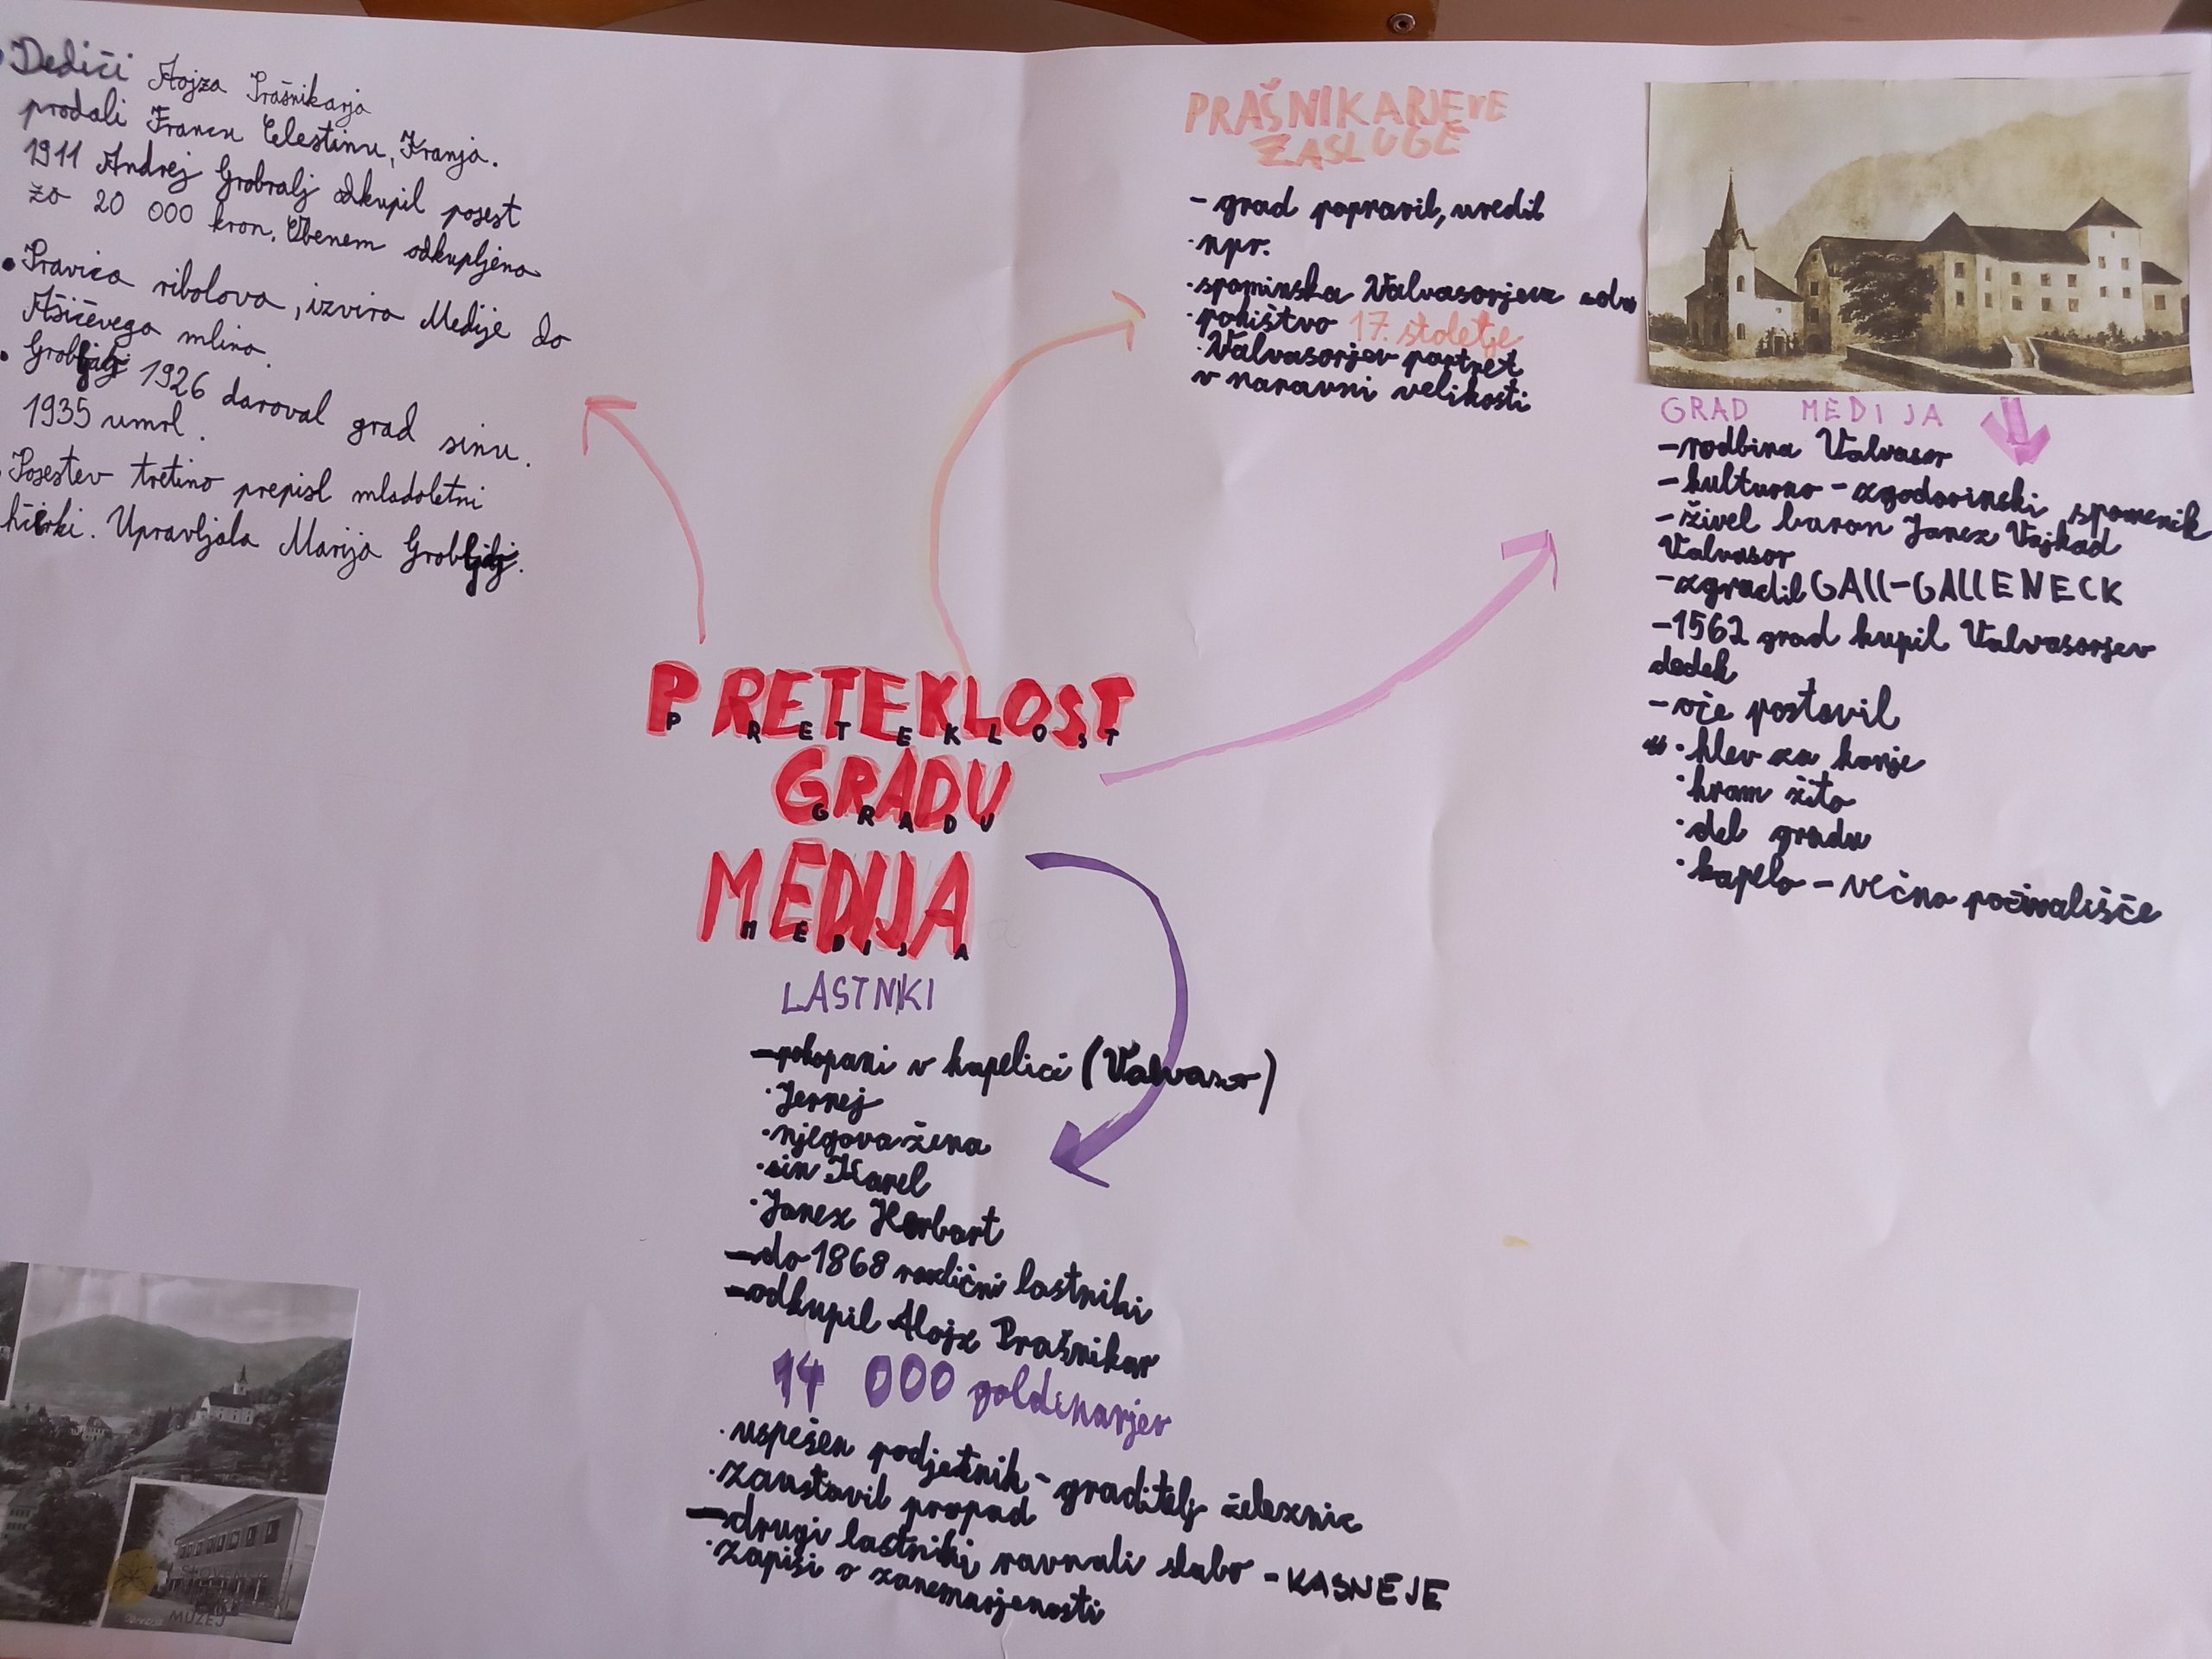 Dediči Alojza Prašnikarja
prodali Francu Celestinu, Kranja.
1911 Andrej Grobralj odkupil posest
za 20 000 kron. Obenem odkupljena
• Pravica ribolova, izvira Medije do
Ašičevega mlina.
• Grobljaj 1926 daroval grad sinu.
1935 umrl.
Posestev tretino prepisl mladoletni
hčerki. Upravljala Marija Grobljaj.
PRAŠNIKARJEVE
ZASLUGE
- grad popravil, uredil
· npr.
· spominska Valvasorjeva
· pohištvo 17. stoletje
· Valvasorjev portret
v naravni velikosti
GRAD MEDIJA
- rodbina Valvasor
- kulturno - zgodovinski spomenik
- živel baron Janez Vajkad
Valvasor
- zgradil GAll-GAllENECK
- 1562 grad kupil Valvasorjev
dedek
- oče postavil
· hlev za konje
· hram žito
· del gradu
· kapelo - večno počivališče
PRETEKLOST
PRETEKLOST
GRADU
GRADU
MEDIJA
MEDIJA
LASTNIKI
- pokopani v kapelici (Valvasor)
· Jernej
· njegova žena
· sin Karel
· Janez Herbart
- do 1868 različni lastniki
- odkupil Alojz Prašnikar
14 000 goldinarjev
· uspešen podjetnik - graditelj železnic
· zaustavil propad
- drugi lastniki ravnali slabo - KASNEJE
· zapisi v zanemarjenosti
MUZEJ